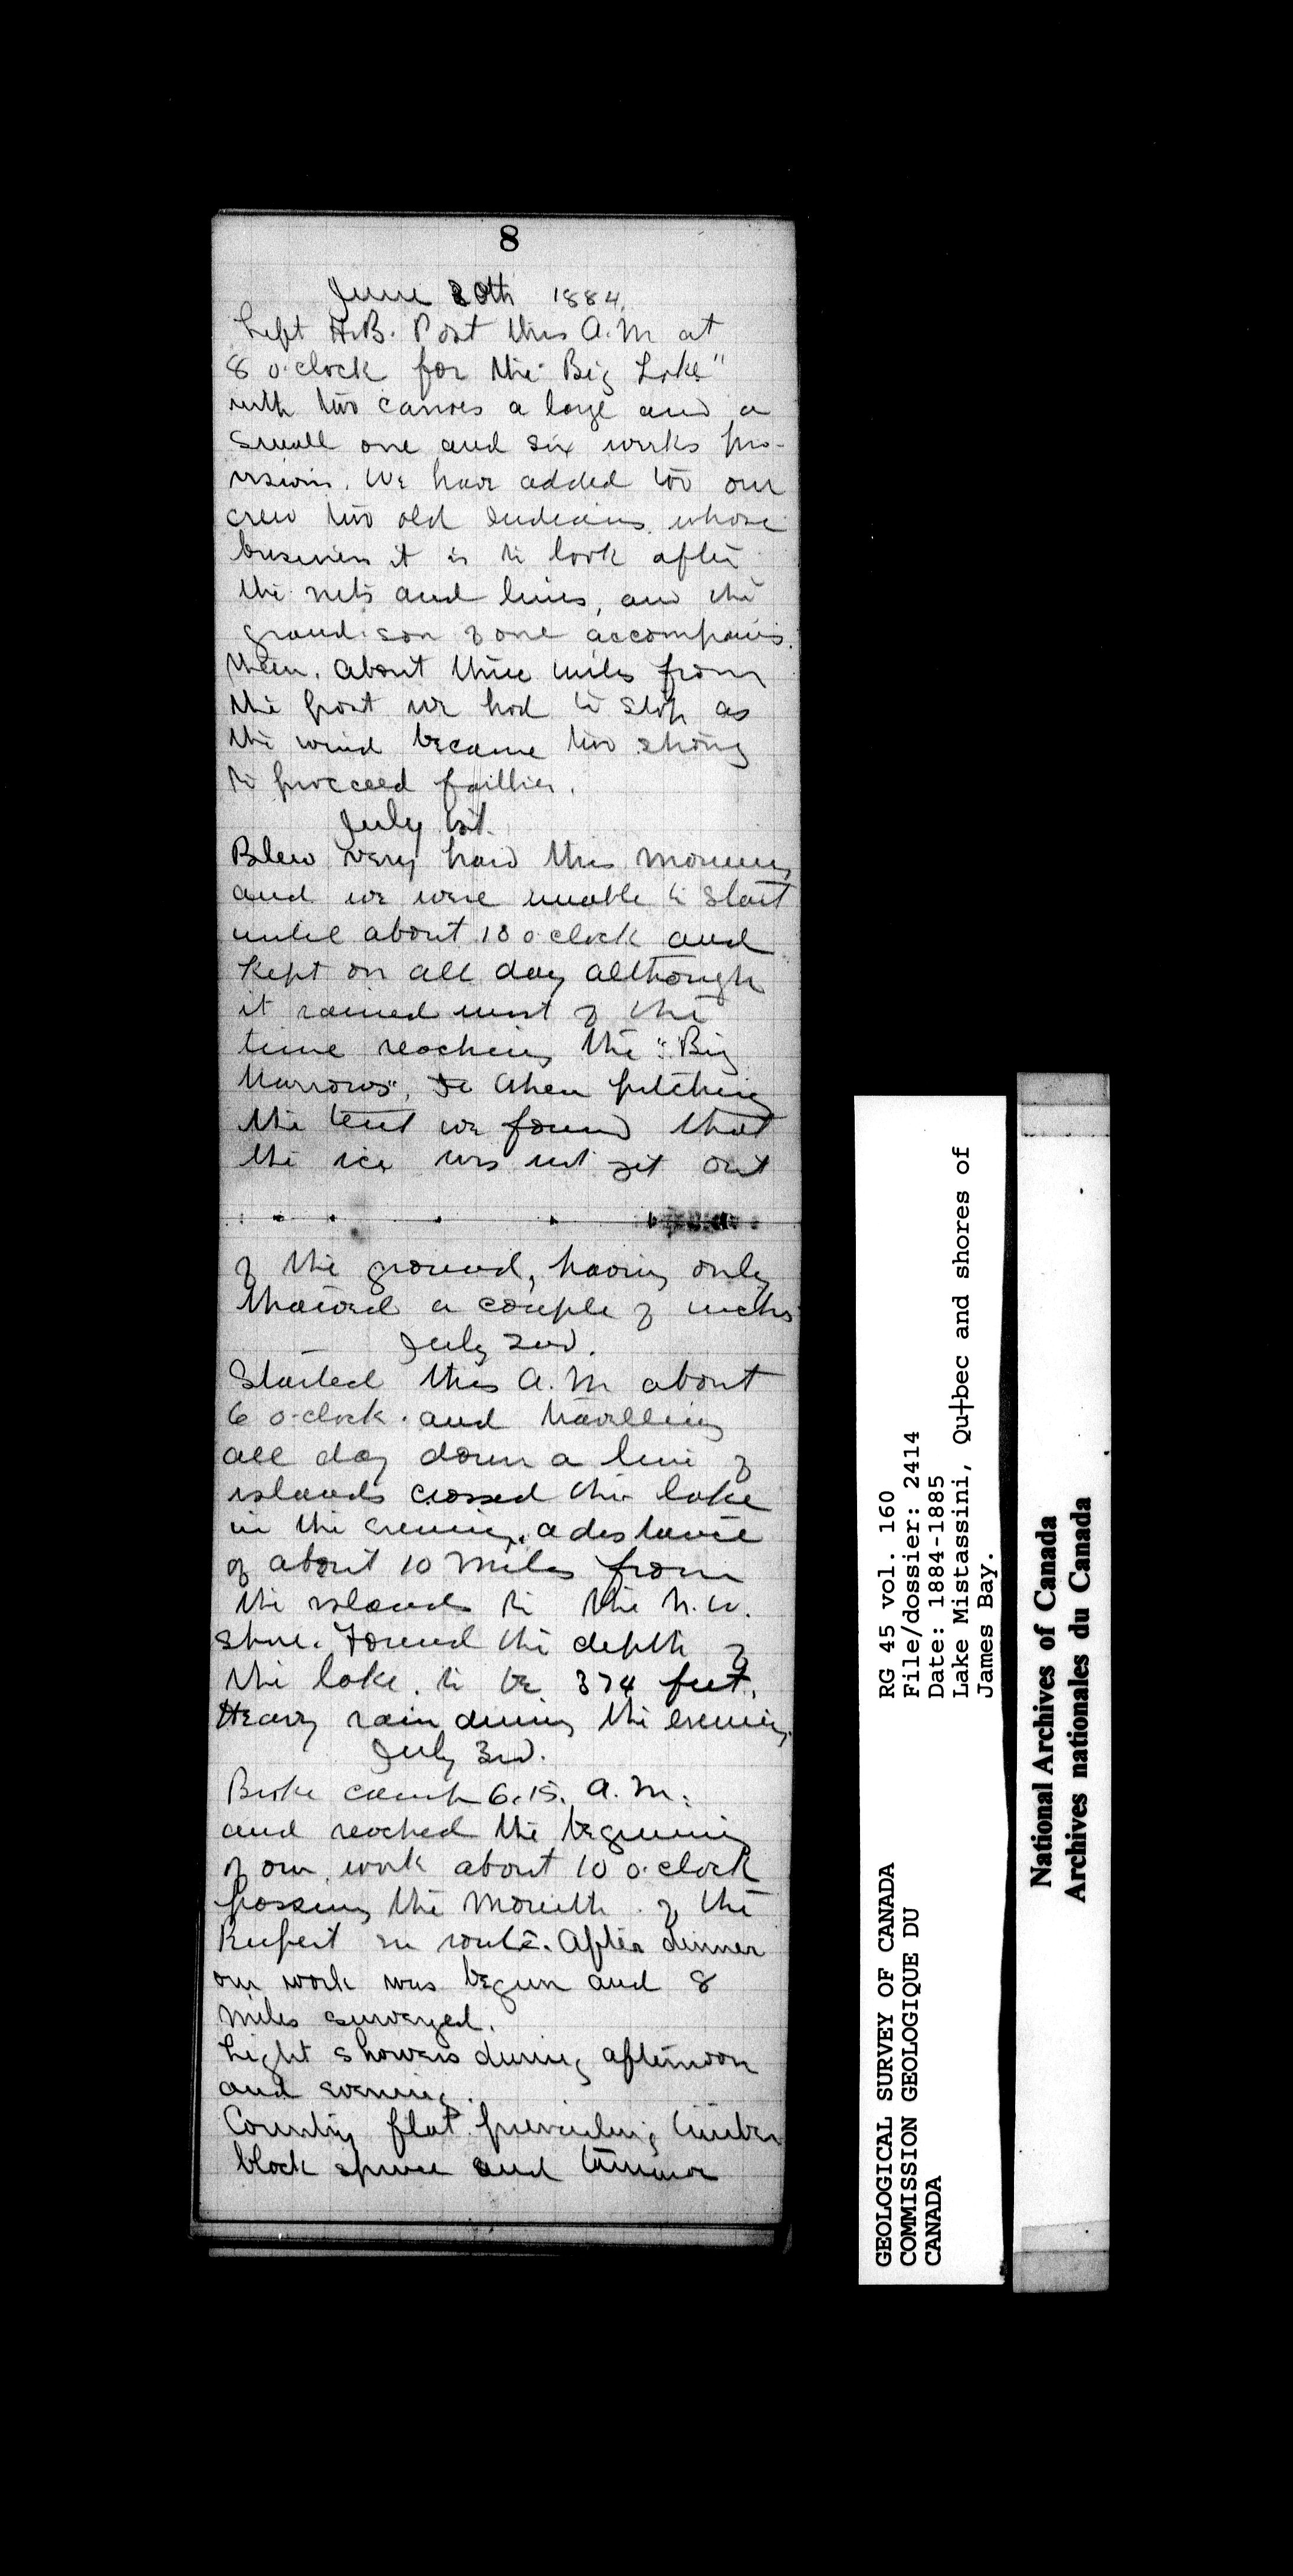 8
June 30th 1884.
Left H.B. Post this A.M at
8 o'clock for the "Big Lake"
with two canoes a large and a
small one and six weeks pro-
visions. We have added too our
crew two old Indians whose
business it is to look after
the nets and lines, and the
grandson of one accompanies
them. About three miles from
the post we had to stop as
the wind became too strong
to proceed further.
July 1st.
Blew very hard this morning
and we were unable to start
until about 10 o'clock and
kept on all day although
it rained most of the
time reaching the "Big
Narrows", When pitching
the tent we found that
the ice was not yet out
of the ground, having only
thawed a couple of inches
July 2nd.
Started this A.M about
6 o'clock and travelling
all day down a line of
islands crossed the lake
in the evening, a distance
of about 10 miles from
the islands to the N.W.
shore. Found the depth of
the lake to be 374 feet.
Heavy rain during the evening.
July 3rd.
Broke camp 6.15. A.M.
and reached the beginning
of our work about 10 o'clock
passing the mouth of the
Rupert en route. After dinner
our work was begun and 8
miles surveyed.
Light showers during afternoon
and evening.
Country flat prevailing timber
black spruce and tamarac
GEOLOGICAL SURVEY OF CANADA
COMMISSION GEOLOGIQUE DU
CANADA
RG 45 vol. 160
File/dossier: 2414
Date: 1884-1885
Lake Mistassini, Qu†bec and shores of
James Bay.
National Archives of Canada
Archives nationales du Canada